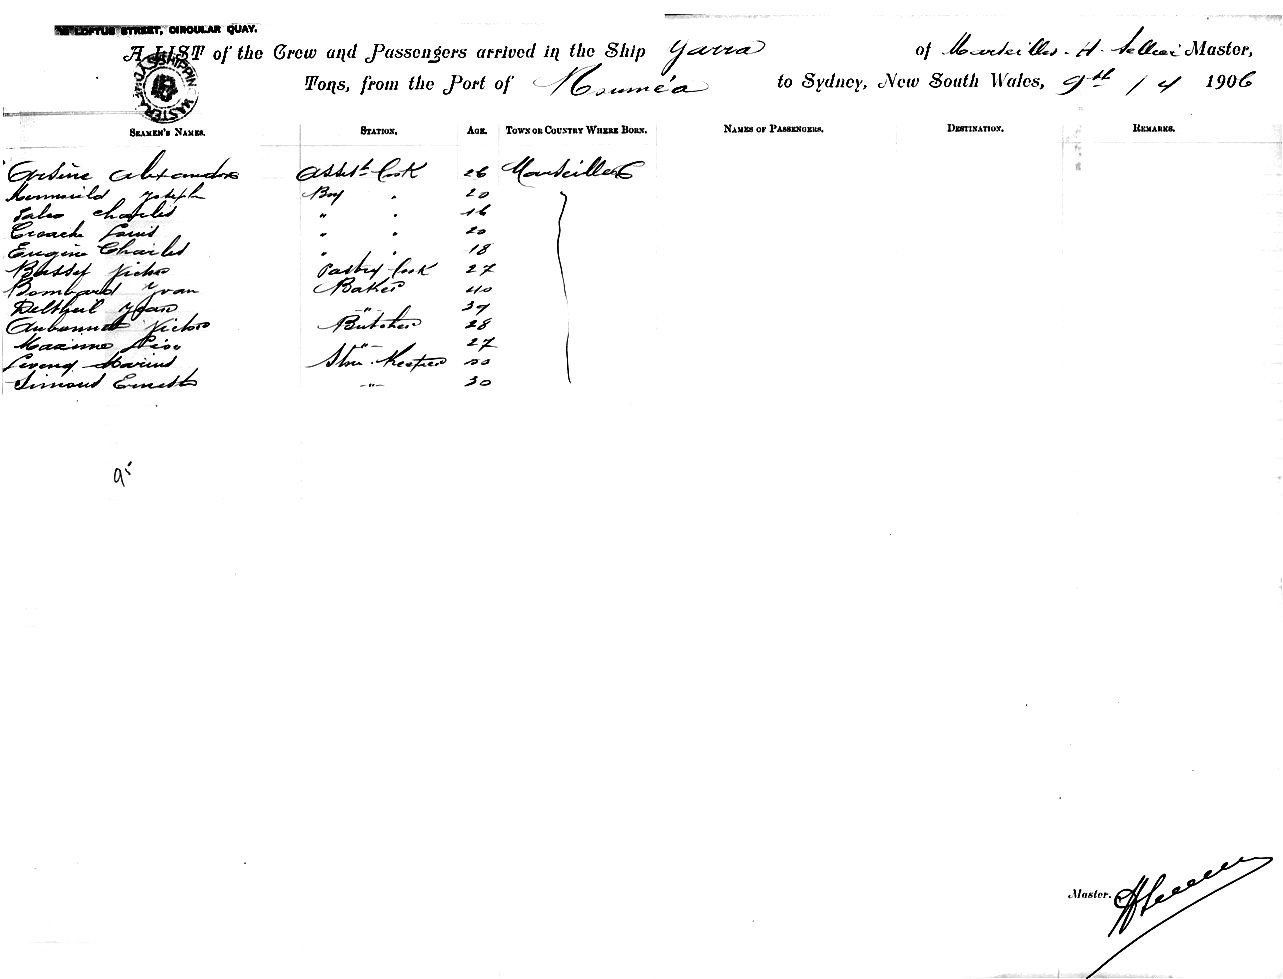 LOFTUS STREET, CIRCULAR QUAY.
A LIST of the Crew and Passengers arrived in the Ship Yarra of Marseilles. H. Master,
Tons, from the Port of Nouméa to Sydney, New South Wales, 9th / 4 1906
SHIPPING MASTER
SEAMEN'S NAMES. STATION. AGE. TOWN OR COUNTRY WHERE BORN. NAMES OF PASSENGERS. DESTINATION. REMARKS.
Arsène Alexandre Assist. Cook 26 Marseilles
Joseph Boy " 20
Charles " " 16
Louis " " 20
Eugène Charles " " 18
Bussy Victor Pastry Cook 27
Bombard Yvan Baker 40
Deltheil Yvan -"- 37
Aubonnet Victor Butcher 28
Maxime -"- 27
Marius Store Keeper 30
Simond Ernest -"- 30
Master.